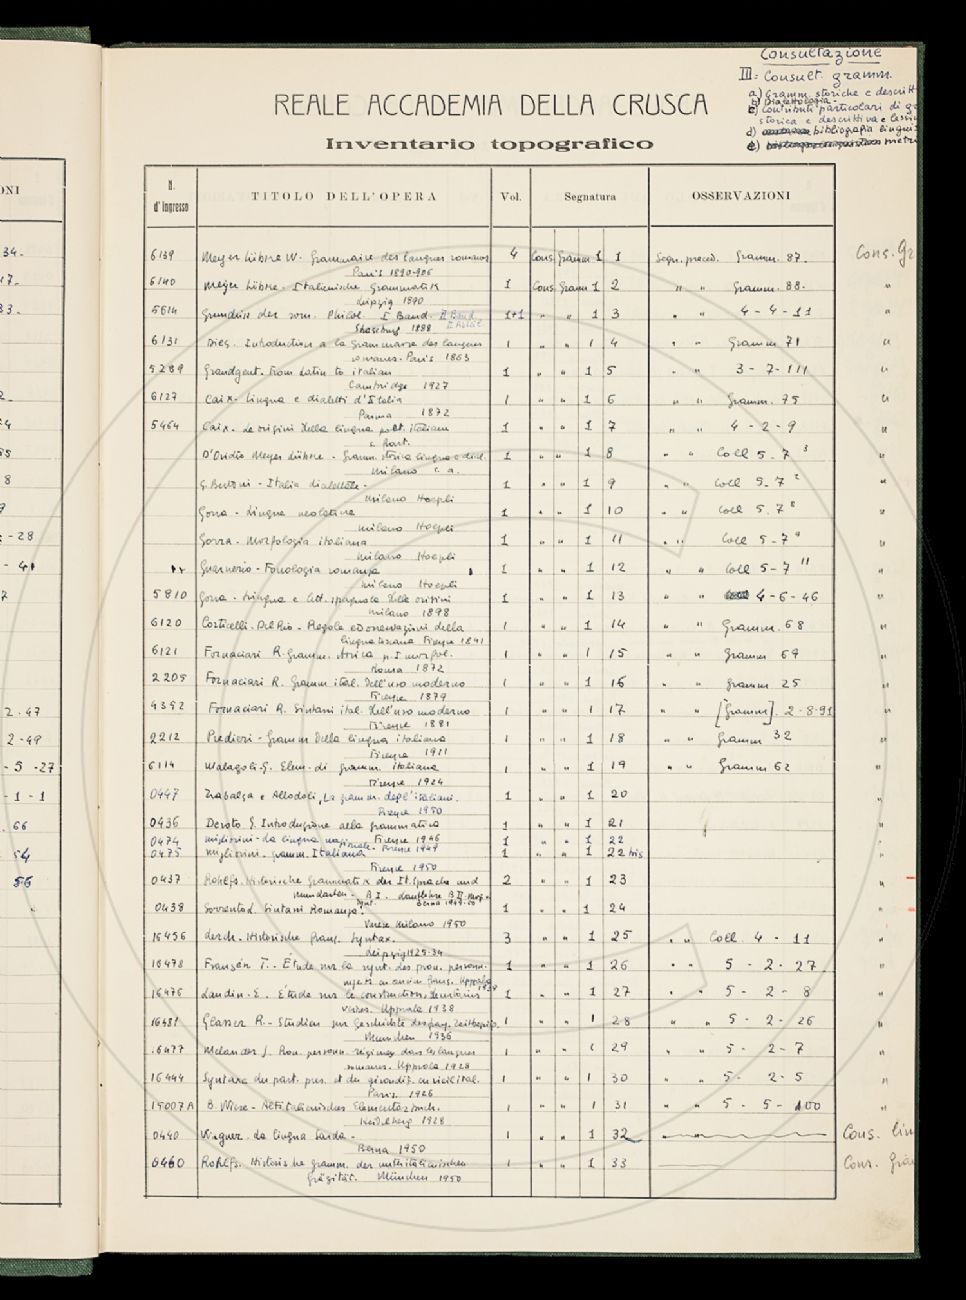 Consultazione
III= Consult. gramm.
a) Gramm. storiche e descritt
b) Dialettologia.
c) Contributi particolari di gr
storica e descrittiva e lessic
d) bibliografia linguis
e) metri
REALE ACCADEMIA DELLA CRUSCA
Inventario topografico
N. d'Ingresso TITOLO DELL'OPERA Vol. Segnatura OSSERVAZIONI
6139 Meyer Lübke W. Grammaire des langues romanes 4 Cons. Gramm 1 1 Segn. preced. Gramm. 87. Cons. Gr
Paris 1890-906
6140 Meyer Lübke. Italienische Grammatik 1 Cons. Gramm 1 2 " " Gramm. 88. "
Leipzig 1890
5614 Grundriss der rom. Philol. I Band. II Band 1+1 " " 1 3 " " 4-4-11 "
Strassburg 1888
6131 Diez. Introduction a la grammaire des langues 1 " " 1 4 " " Gramm 71 "
romanes. Paris 1863
5289 Grandgent. From Latin to italian 1 " " 1 5 " " 3-7-111 "
Cambridge 1927
6127 Caix. Lingua e dialetti d'Italia 1 " " 1 6 " " Gramm. 75 "
Parma 1872
5464 Caix. Le origini della lingua poet. italiana 1 " " 1 7 " " 4-2-9 "
D'Ovidio Meyer Lübke. Gramm. storica lingua e dial. 1 " " 1 8 " " Coll 5.7 3 "
Milano
G. Bertoni - Italia dialettale. 1 " " 1 9 " " Coll 5.7 2 "
Milano Hoepli
Gorra - Lingue neolatine 1 " " 1 10 " " Coll 5.7 8 "
Milano Hoepli
Gorra - Morfologia italiana 1 " " 1 11 " " Coll 5-7 9 "
Milano Hoepli
Guarnerio - Fonologia romanza 1 " " 1 12 " " Coll 5-7 11 "
Milano Hoepli
5810 Gorra - Lingua e lett. spagnola delle origini 1 " " 1 13 " " 4-6-46 "
Milano 1898
6120 Corticelli. Del Rio - Regole ed osservazioni della 1 " " 1 14 " " Gramm. 68 "
lingua toscana Firenze 1841
6121 Fornaciari R. Gramm. storica p. I morfol. 1 " " 1 15 " " Gramm 69 "
Roma 1872
2205 Fornaciari R. Gramm ital. dell'uso moderno 1 " " 1 16 " " Gramm 25 "
Firenze 1879
4392 Fornaciari R. Sintassi ital. dell'uso moderno 1 " " 1 17 " " [Gramm]. 2-8-91 "
Firenze 1881
2212 Predieri - Gramm della lingua italiana 1 " " 1 18 " " Gramm 32 "
Firenze 1911
6114 Malagoli G. Elem. di gramm. italiana 1 " " 1 19 " " Gramm 62 "
Firenze 1924
0447 Trabalza e Allodoli, La gramm. degl'italiani. 1 " " 1 20 "
Firenze 1950
0436 Devoto G. Introduzione alla grammatica 1 " " 1 21 "
0474 Migliorini - La lingua nazionale. Firenze 1946 1 " " 1 22 "
0475 Migliorini - Gramm. Italiana Firenze 1949 1 " " 1 22 bis "
Firenze 1950
0437 Rohlfs. Historische Grammatik der It. Sprache und 2 " " 1 23 "
Mundarten - B I. Lautlehre B II.
Berna 1949-50
0438 Sorrento L. Sintassi Romanza. 1 " " 1 24 "
Varese Milano 1950
16456 Lerch. Historische franz. Syntax. 3 " " 1 25 " " Coll. 4-11 "
Leipzig 1925-34
16478 Franzén T. - Etude sur la synt. des pron. personn. 1 " " 1 26 " " 5-2-27 "
sujets en ancien franç. Uppsala
16476 Landin. E. Étude sur les constructions 1 " " 1 27 " " 5-2-8 "
Uppsala 1938
16481 Glasser R. - Studien zur Geschichte des franz. Zeitbegriffs. 1 " " 1 28 " " 5-2-26 "
München 1936
16477 Melander J. Pron. personn. régimes dans les langues 1 " " 1 29 " " 5-2-7 "
romanes. Uppsala 1928
16444 Syntaxe du part. prés. et du gérondif en vieil ital. 1 " " 1 30 " " 5-2-5 "
Paris 1926
15007A B. Wiese - Altitalienisches Elementarbuch. 1 " " 1 31 " " 5-5-100 "
Heidelberg 1928
0440 Wagner. La lingua sarda - 1 " " 1 32 Cons. lin
Berna 1950
0460 Rohlfs. Historische gramm. der unteritalienischen 1 " " 1 33 Cons. Gra
Gräzität. München 1950
ONI
34.
17.
33.
8
-28
- 41
7
2.47
2-49
-5-27
-1-1
66
54
56